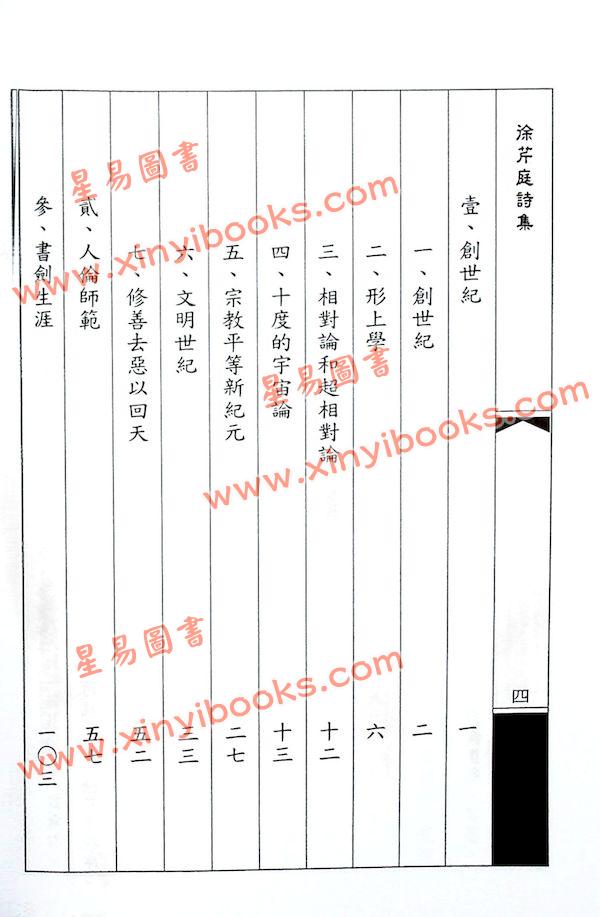 涂芹庭詩集
四
壹、創世紀 一
一、創世紀 二
二、形上學 六
三、相對論和超相對論 十二
四、十度的宇宙論 十三
五、宗教平等新紀元 二七
六、文明世紀 三三
七、修善去惡以回天 五二
貳、人倫師範 五七
參、書劍生涯 一〇三
星易圖書
www.xinyibooks.com
星易圖書
www.xinyibooks.com
星易圖書
www.xinyibooks.com